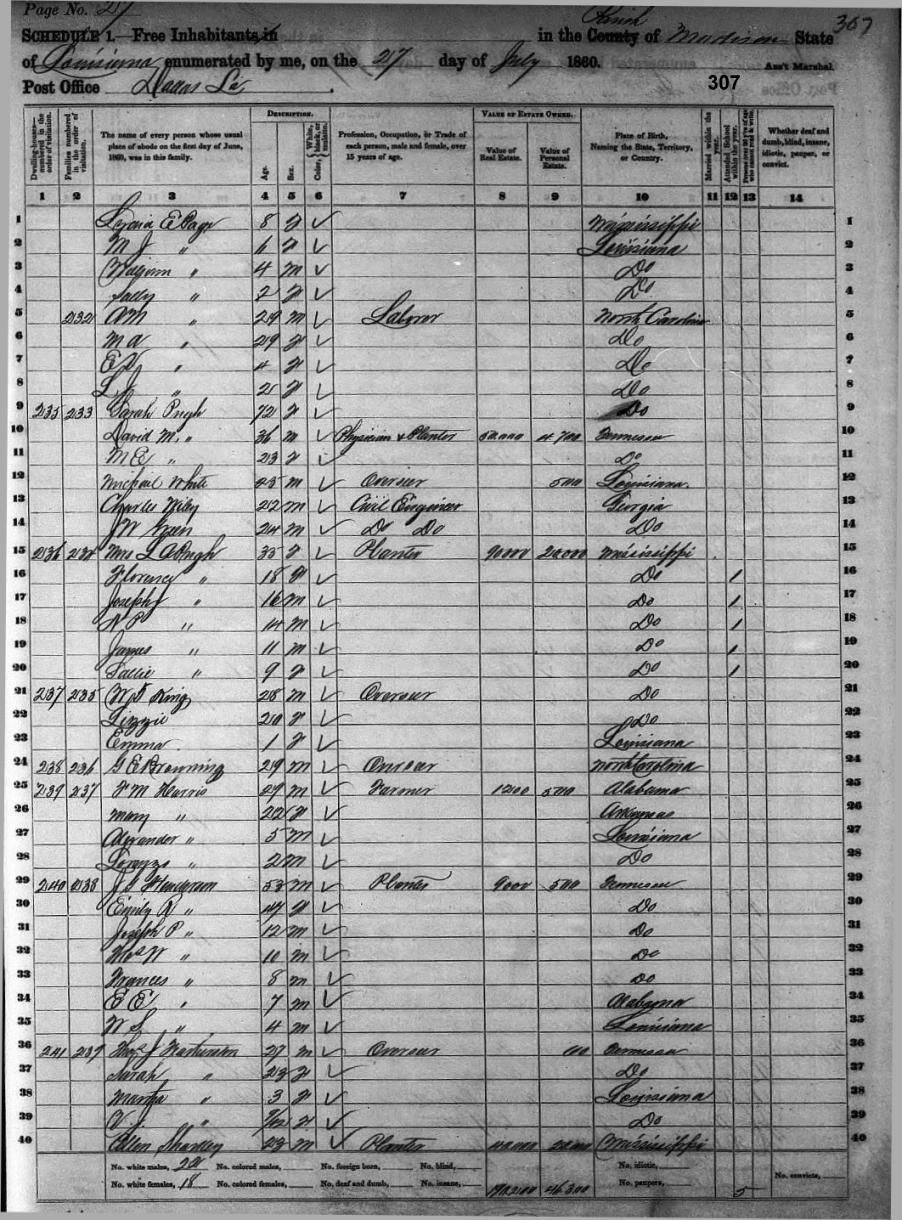 Page No. 27
307
SCHEDULE 1.—Free Inhabitants in in the County Parish of Madison State
of Louisiana enumerated by me, on the 27 day of July 1860. Ass't Marshal.
Post Office Dallas La. 307
DESCRIPTION. VALUE OF ESTATE OWNED.
Dwelling-houses—numbered in the order of visitation. Families numbered in the order of visitation. The name of every person whose usual place of abode on the first day of June, 1860, was in this family. Age. Sex. Color, White, black, or mulatto. Profession, Occupation, or Trade of each person, male and female, over 15 years of age. Value of Real Estate. Value of Personal Estate. Place of Birth, Naming the State, Territory, or Country. Married within the year. Attended School within the year. Persons over 20 y'rs of age who cannot read & write. Whether deaf and dumb, blind, insane, idiotic, pauper, or convict.
1 2 3 4 5 6 7 8 9 10 11 12 13 14
1 E Page 8 f ✓ Mississippi 1
2 M J " 6 f ✓ Louisiana 2
3 " 4 m ✓ Do 3
4 Sally " 2 f ✓ Do 4
5 232 AM " 29 m ✓ Laborer North Carolina 5
6 M A " 29 f ✓ Do 6
7 " 4 f ✓ Do 7
8 L J " 2 f ✓ Do 8
9 235 233 Sarah Pugh 72 f ✓ Do 9
10 David M. " 36 m ✓ Physician & Planter 50,000 4700 Tennessee 10
11 M E " 23 f Do 11
12 Michail White 25 m ✓ Overseer 500 Louisiana 12
13 Charles Wiley 22 m ✓ Civil Engineer Georgia 13
14 JW Green 24 m ✓ Do Do Do 14
15 236 234 Mrs L A Pugh 35 f ✓ Planter 90000 20,000 Mississippi 15
16 Florence " 18 f ✓ Do 1 16
17 Joseph " 16 m ✓ Do 1 17
18 " 14 m ✓ Do 1 18
19 James " 11 m ✓ Do 1 19
20 Sallie " 9 f ✓ Do 1 20
21 237 235 King 28 m ✓ Overseer Do 21
22 Lizzie 20 f ✓ Do 22
23 Emma 1 f ✓ Louisiana 23
24 238 236 G E Browning 29 m ✓ Overseer North Carolina 24
25 239 237 F M Harris 29 m ✓ Farmer 1200 500 Alabama 25
26 Mary " 22 f ✓ Arkansas 26
27 Alexander " 5 m ✓ Louisiana 27
28 Lorenzo " 2 m ✓ Do 28
29 240 238 Henderson 53 m ✓ Planter 9000 500 Tennessee 29
30 Emily R " 47 f ✓ Do 30
31 Joseph P " 12 m ✓ Do 31
32 " 10 m ✓ Do 32
33 Frances " 8 m ✓ Do 33
34 E E " 7 m ✓ Alabama 34
35 W L " 4 m ✓ Louisiana 35
36 241 239 27 m ✓ Overseer 100 Tennessee 36
37 Sarah " 23 f ✓ Do 37
38 Martha " 3 f ✓ Louisiana 38
39 " f ✓ Do 39
40 Allen Sharkey 23 m ✓ Planter Mississippi 40
No. white males, 22 No. colored males, No. foreign born, No. blind, No. idiotic, No. convicts,
No. white females, 18 No. colored females, No. deaf and dumb, No. insane, 190200 46300 No. paupers, 5